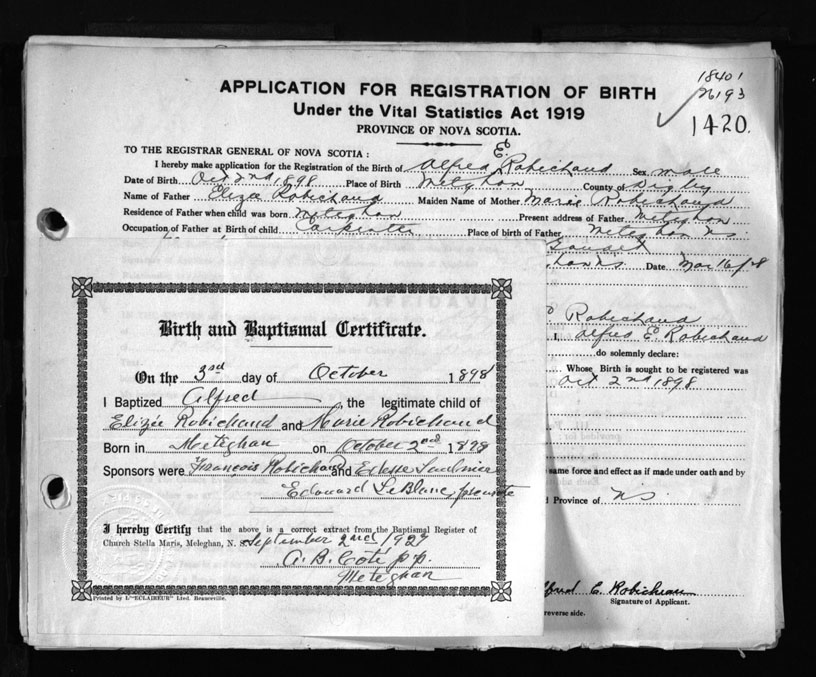 18401
26193
1420.
APPLICATION FOR REGISTRATION OF BIRTH
Under the Vital Statistics Act 1919
PROVINCE OF NOVA SCOTIA.
TO THE REGISTRAR GENERAL OF NOVA SCOTIA :
I hereby make application for the Registration of the Birth of Alfred E. Robichaud Sex male
Date of Birth Oct 2nd 1898 Place of Birth Meteghan County of Digby
Name of Father Eliza Robichaud Maiden Name of Mother Marie Robichaud
Residence of Father when child was born Meteghan Present address of Father Meteghan
Occupation of Father at Birth of child Carpenter Place of birth of Father Meteghan NS.
Date
Robichaud
I, Alfred E Robichaud
do solemnly declare:
Whose Birth is sought to be registered was
Oct 2nd 1898
same force and effect as if made under oath and by
d Province of NS.
lfred E. Robichaud
Signature of Applicant.
reverse side.
Birth and Baptismal Certificate.
On the 3rd day of October 1898
I Baptized Alfred the legitimate child of
Elizée Robichaud and Marie Robichaud
Born in Meteghan on October 2nd 1898
Sponsors were François Robichaud and Saulnier
Edouard LeBlanc
I hereby Certify that the above is a correct extract from the Baptismal Register of
Church Stella Maris, Meleghan, N. S. September 2nd 1927
A. B. Coté p.p.
Meteghan
Printed by L'"ECLAIREUR" Lted. Beauceville.